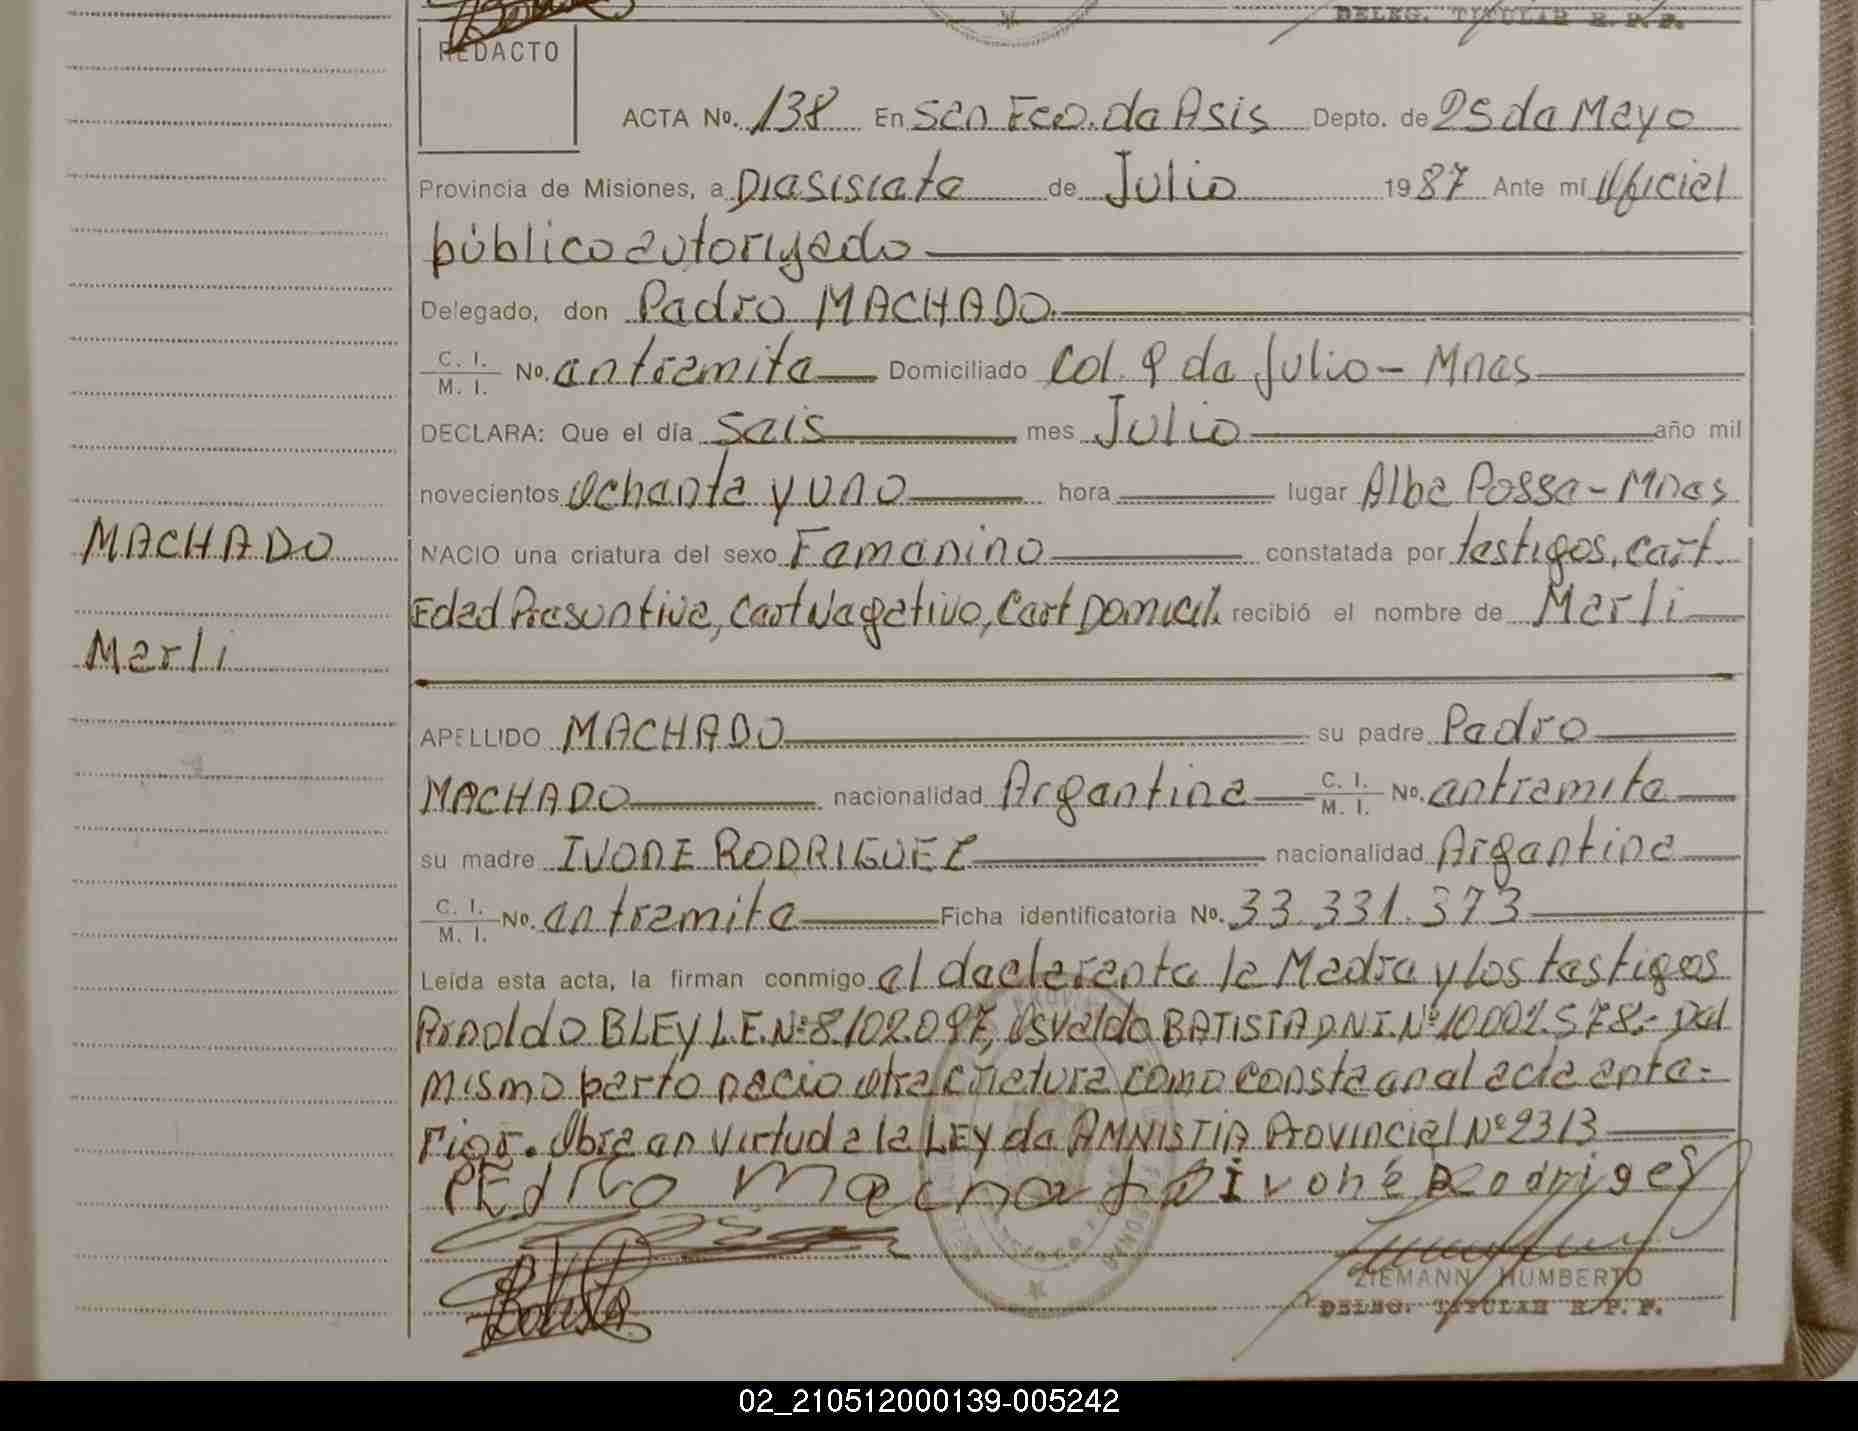 DELEG. TITULAR R. P. P.
REDACTO
ACTA No. 138 En San Fco. de Asis Depto. de 25 de Mayo
Provincia de Misiones, a Diesisiete de Julio 1987 Ante mí Oficial
público autorizado
Delegado, don Pedro MACHADO
C. I. M. I. No. en tramite Domiciliado Col. 9 de Julio - Mnes
DECLARA: Que el día seis mes Julio año mil
novecientos ochenta y uno hora lugar Alba Posse - Mnes
MACHADO
NACIO una criatura del sexo Femenino constatada por testigos, cert
Edad Presuntiva, Cert Negativo, Cert Domicil. recibió el nombre de Merli
Merli
APELLIDO MACHADO su padre Pedro
MACHADO nacionalidad Argentina C. I. M. I. No. en tramite
su madre IVONE RODRIGUEZ nacionalidad Argentina
C. I. M. I. No. en tramite Ficha identificatoria No. 33.331.373
Leída esta acta, la firman conmigo el declarante la Madre y los testigos
Arnoldo BLEY L.E.Nº 8.102.097, Osvaldo BATISTA D.N.I. Nº 10.002.578.- Del
mismo parto nacio otra criatura como consta en el acta ante-
rior. Obra en virtud a la LEY de AMNISTIA Provincial Nº 2313
PEdro Machado Ivone Rodriges
ZIEMANN HUMBERTO
DELEG. TITULAR R. P. P.
02_210512000139-005242